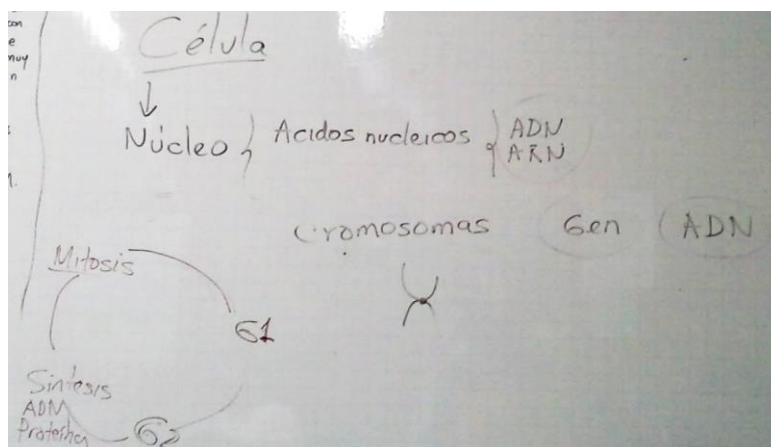 con
e
muy
n
Célula
Núcleo } Acidos nucleicos { ADN
ARN
Cromosomas Gen ADN
Mitosis
G1
Síntesis
ADN
Proteínas
G2